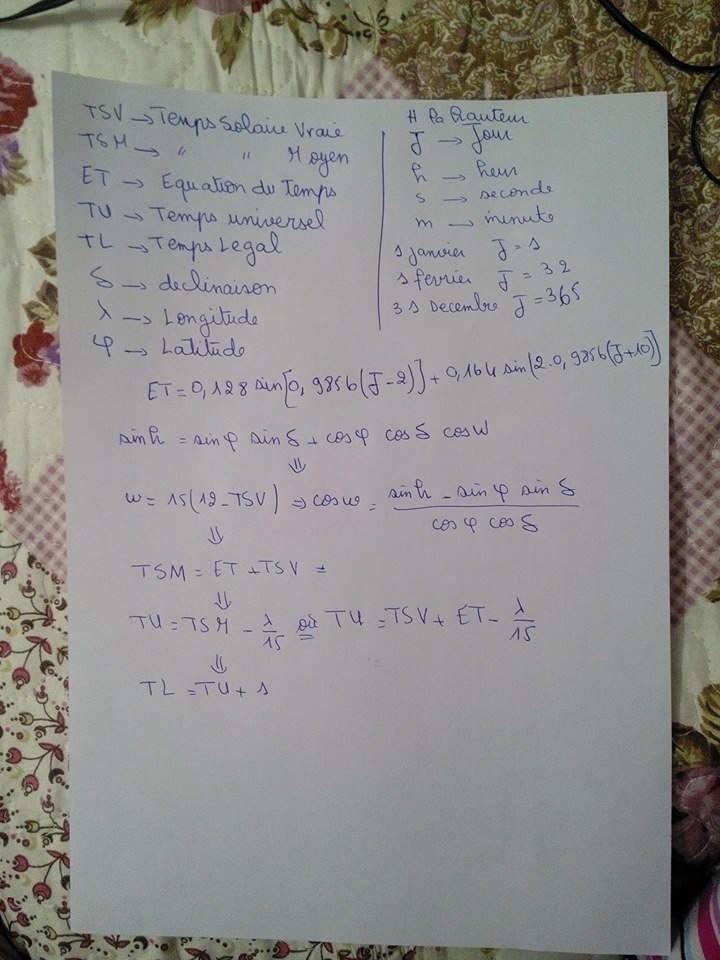 TSV → Temps Solaire Vraie
TSM → " " Moyen
ET → Equation du Temps
TU → Temps universel
TL → Temps Legal
δ → declinaison
λ → Longitude
φ → Latitude
H la hauteur
J → Jour
h → heur
s → seconde
m → minute
1 janvier J = 1
1 fevrier J = 32
31 Decembre J = 365
ET = 0,128 sin[0,9856(J-2)] + 0,164 sin[2.0,9856(J+10)]
sinh = sinφ sinδ + cosφ cosδ cosω
⇓
ω = 15(12-TSV) ⇒ cosω = (sinh - sinφ sinδ) / (cosφ cosδ)
⇓
TSM = ET + TSV =
⇓
TU = TSM - λ/15 où TU = TSV + ET - λ/15
⇓
TL = TU + 1